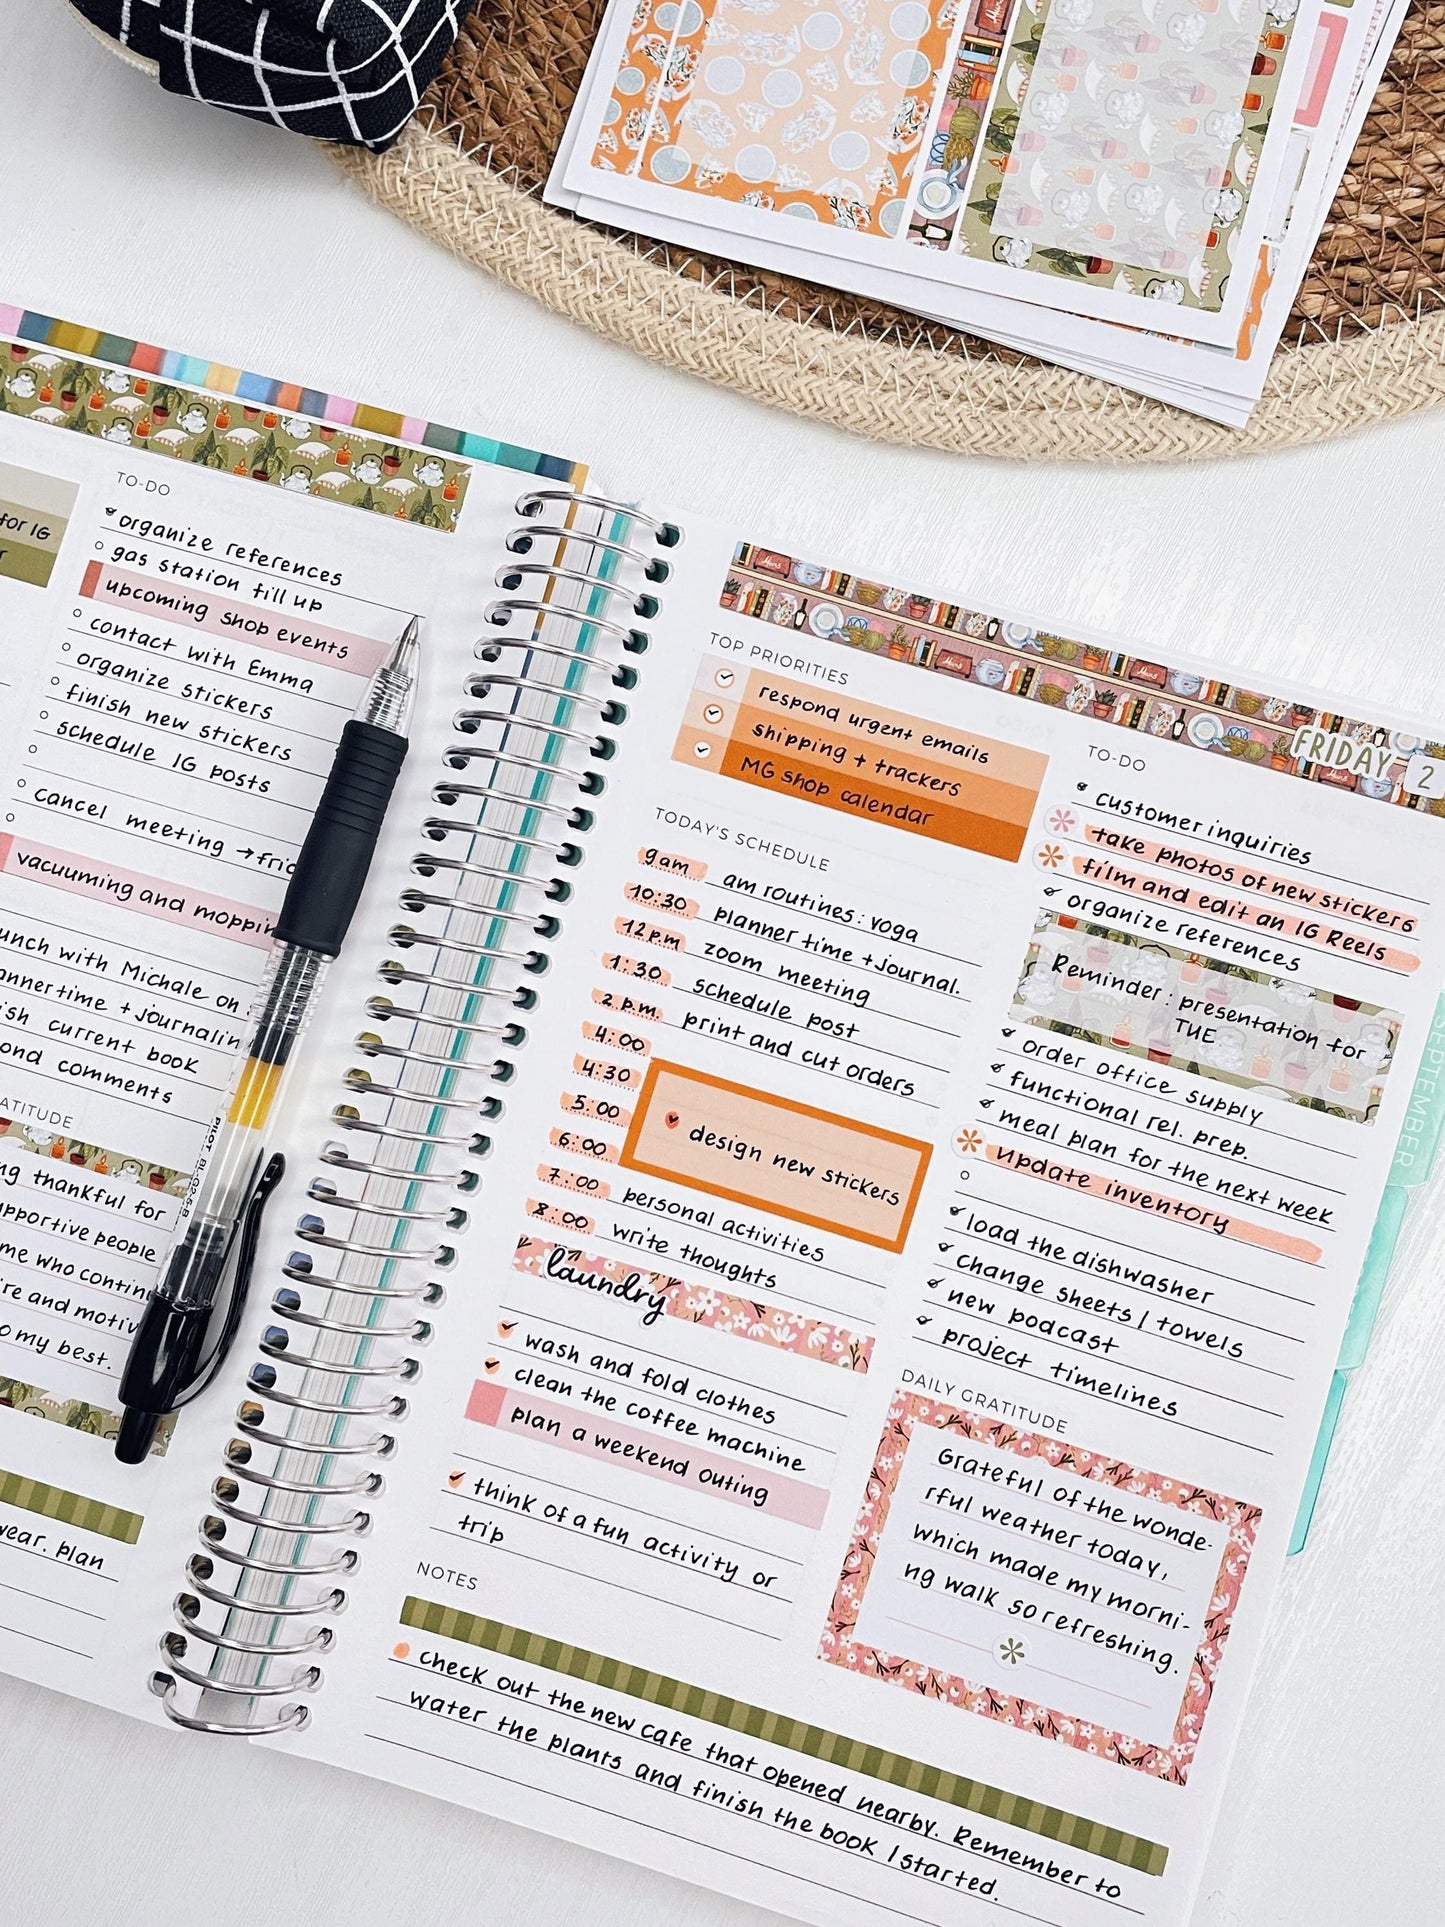 for IG
TO-DO
organize references
gas station fill up
upcoming shop events
contact with Emma
organize stickers
finish new stickers
schedule IG posts
cancel meeting →frid
vacuuming and moppin
unch with Michale on
annertime + journalin
ish current book
ond comments
ATITUDE
ng thankful for
upportive people
me who contin
re and motiv
o my best.
wear. plan
PILOT BL-G2-5-B
TOP PRIORITIES
respond urgent emails
shipping + trackers
MG shop calendar
TODAY'S SCHEDULE
9am am routines: yoga
10:30 planner time + journal.
12p.m zoom meeting
1:30 schedule post
2 p.m. print and cut orders
4:00
4:30
5:00 design new stickers
6:00
7:00 personal activities
8:00 write thoughts
laundry
wash and fold clothes
clean the coffee machine
plan a weekend outing
think of a fun activity or
trip
NOTES
check out the new cafe that opened nearby. Remember to
water the plants and finish the book I started.
FRIDAY 2
TO-DO
customer inquiries
take photos of new stickers
film and edit an IG Reels
organize references
Reminder: presentation for
TUE
order office supply
functional rel. prep.
meal plan for the next week
update inventory
load the dishwasher
change sheets / towels
new podcast
project timelines
DAILY GRATITUDE
Grateful of the wonde-
rful weather today,
which made my morni-
ng walk so refreshing.
SEPTEMBER